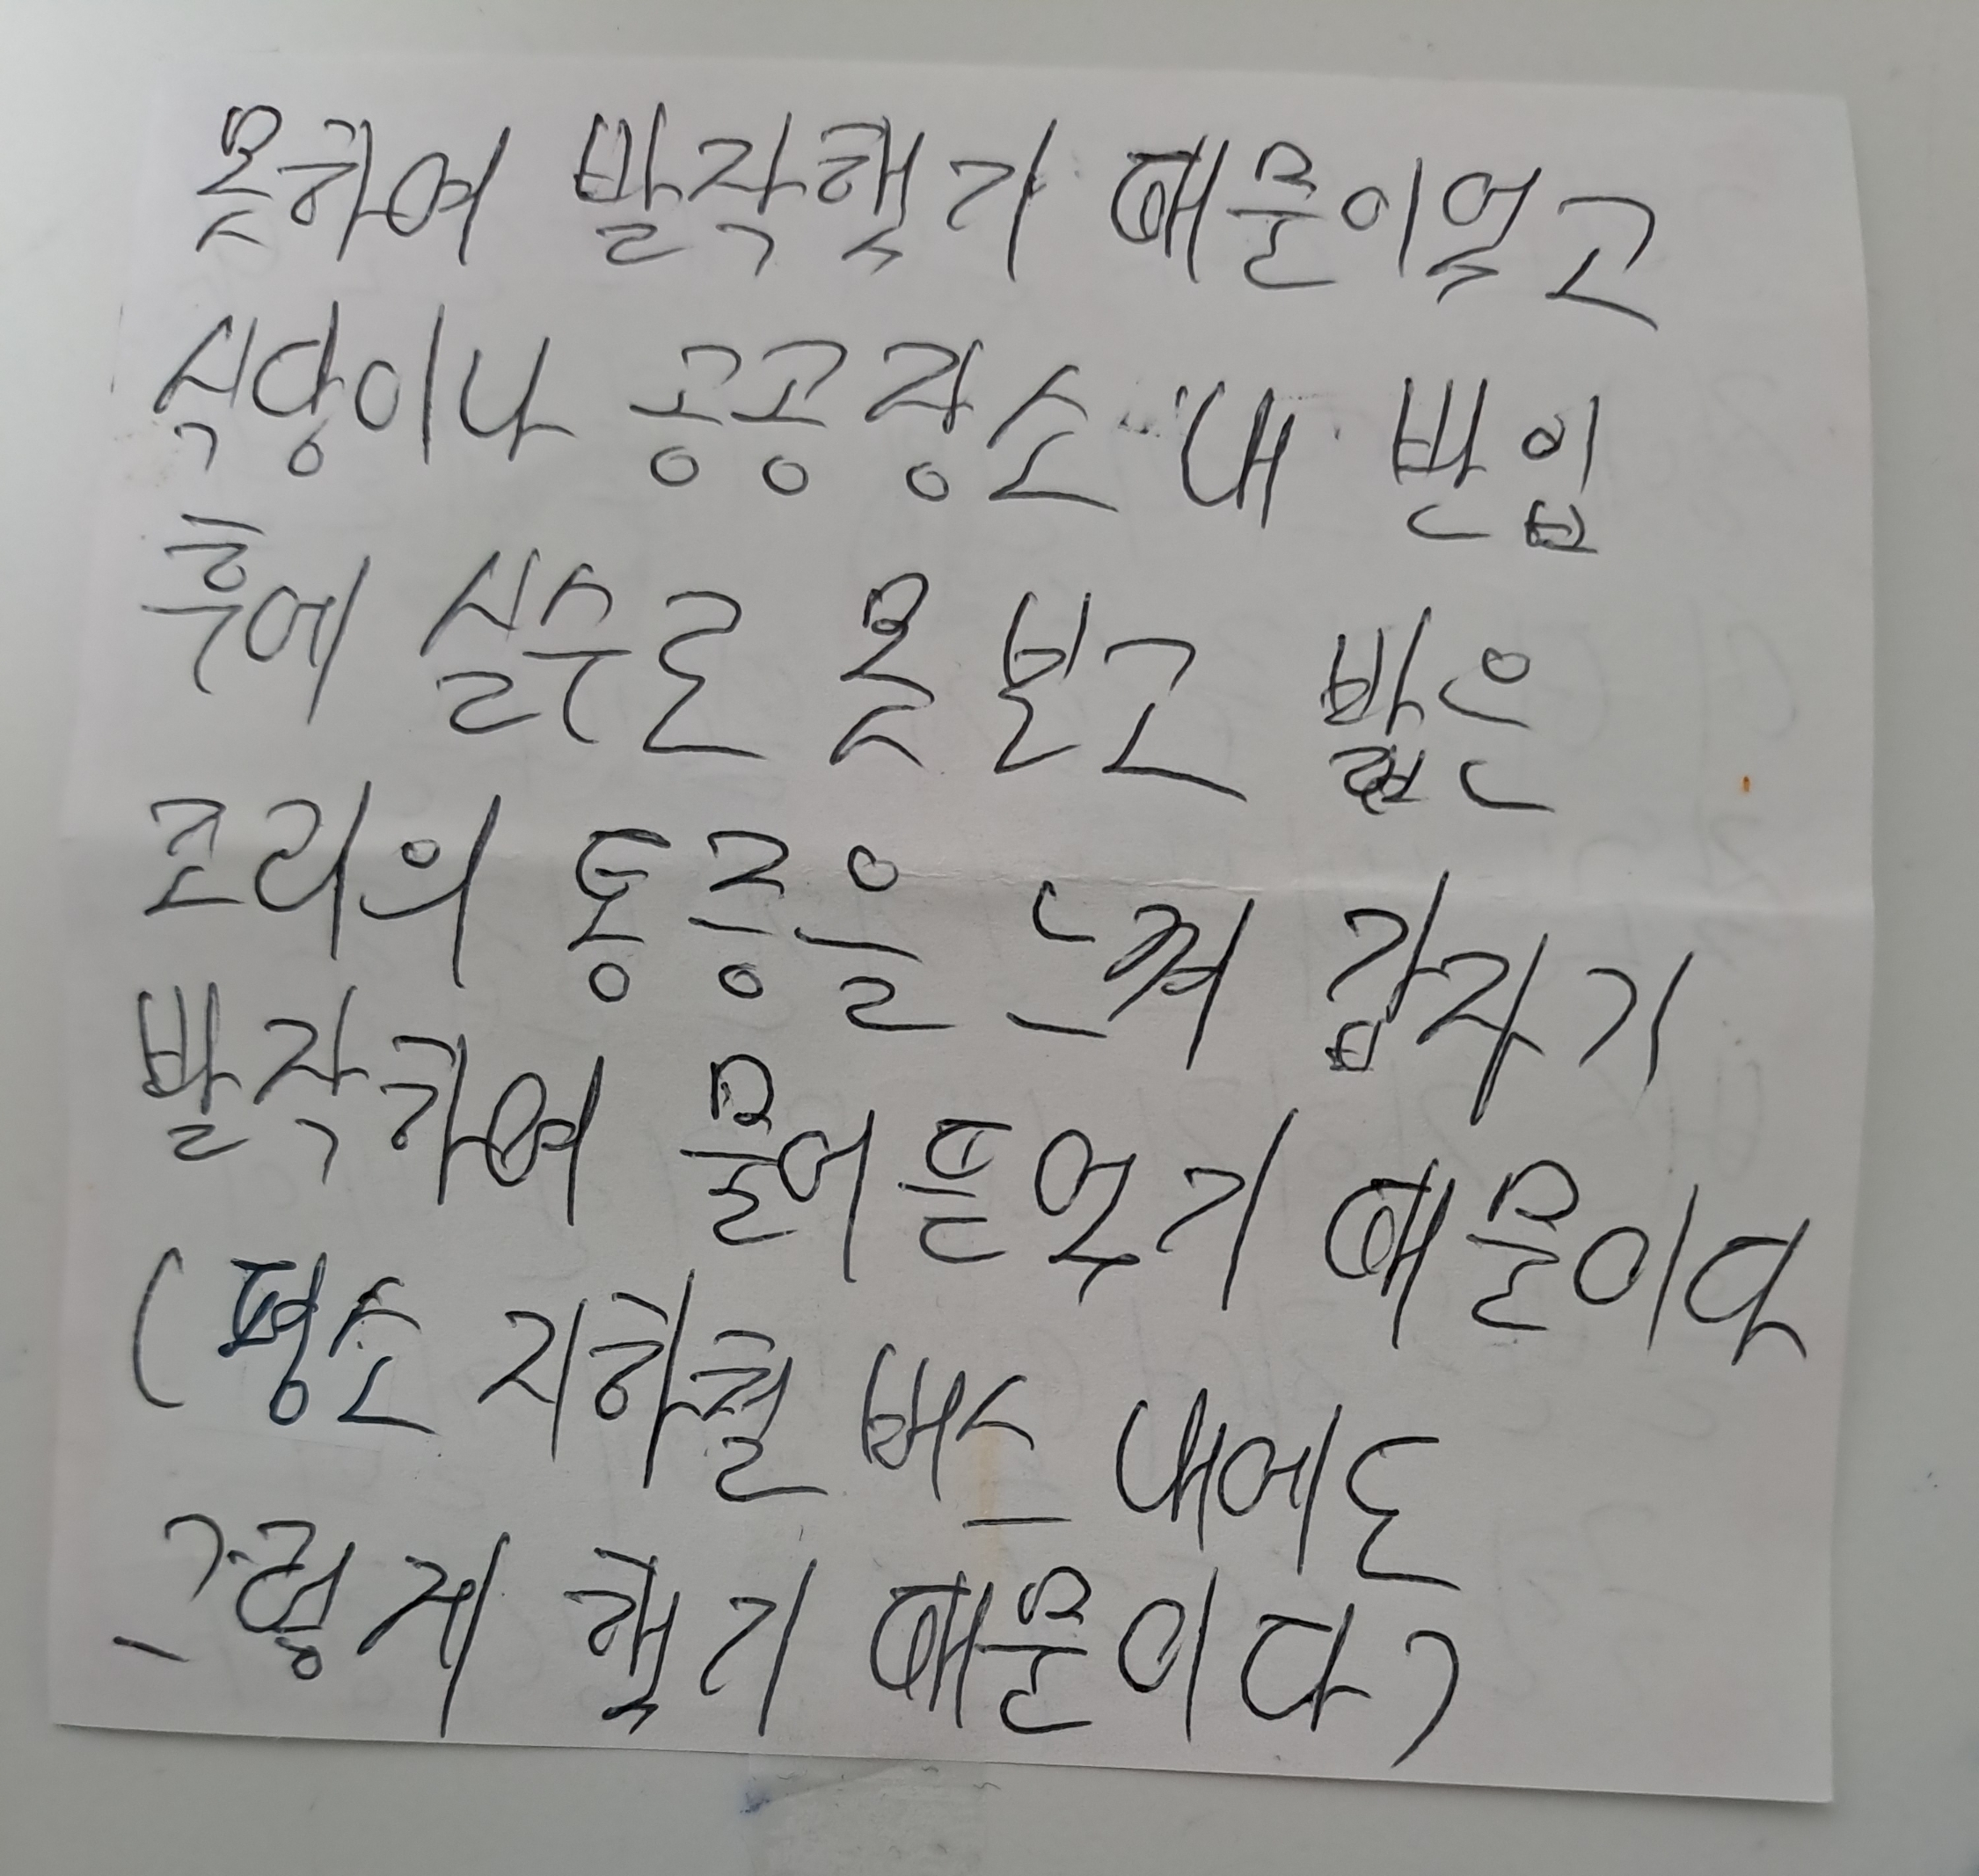 못하여 발작했기 때문이었고
식당이나 공공장소 내 반입
후에 실수로 못 보고 밟은
꼬리의 통증을 느껴 갑자기
발작하여 물어뜯었기 때문이다
(평소 지하철 버스 내에도
그렇게 했기 때문이다)